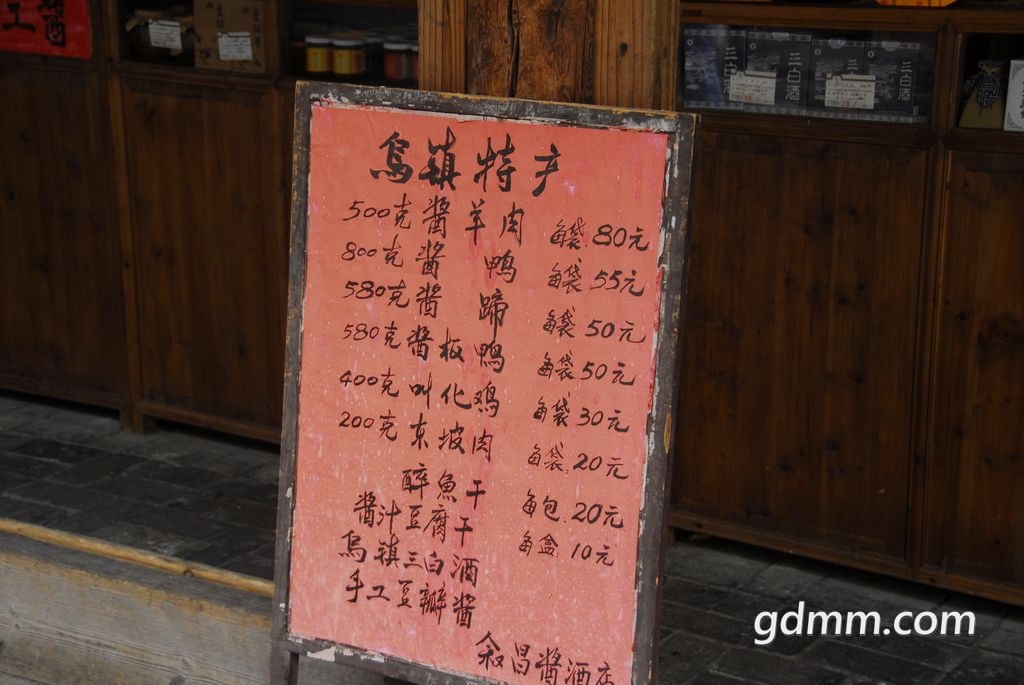 乌镇特产
500克酱羊肉 每袋 80元
800克酱鸭 每袋 55元
580克酱蹄 每袋 50元
580克酱板鸭 每袋 50元
400克叫化鸡 每袋 30元
200克东坡肉 每袋 20元
醉魚干 每包 20元
酱汁豆腐干 每盒 10元
乌镇三白酒
手工豆瓣酱
叙昌酱酒店
三白酒
三白酒
三白酒
工
gdmm.com